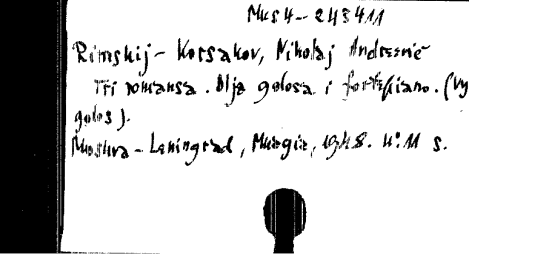 Mus 4-- 243411
Rimskij - Korsakov, Nikolaj Andreevič
Tri romansa. Dlja golosa i fortepiano. (Vy
golos).
Moskva - Leningrad, Muzgiz, 1948. 4° 11 s.